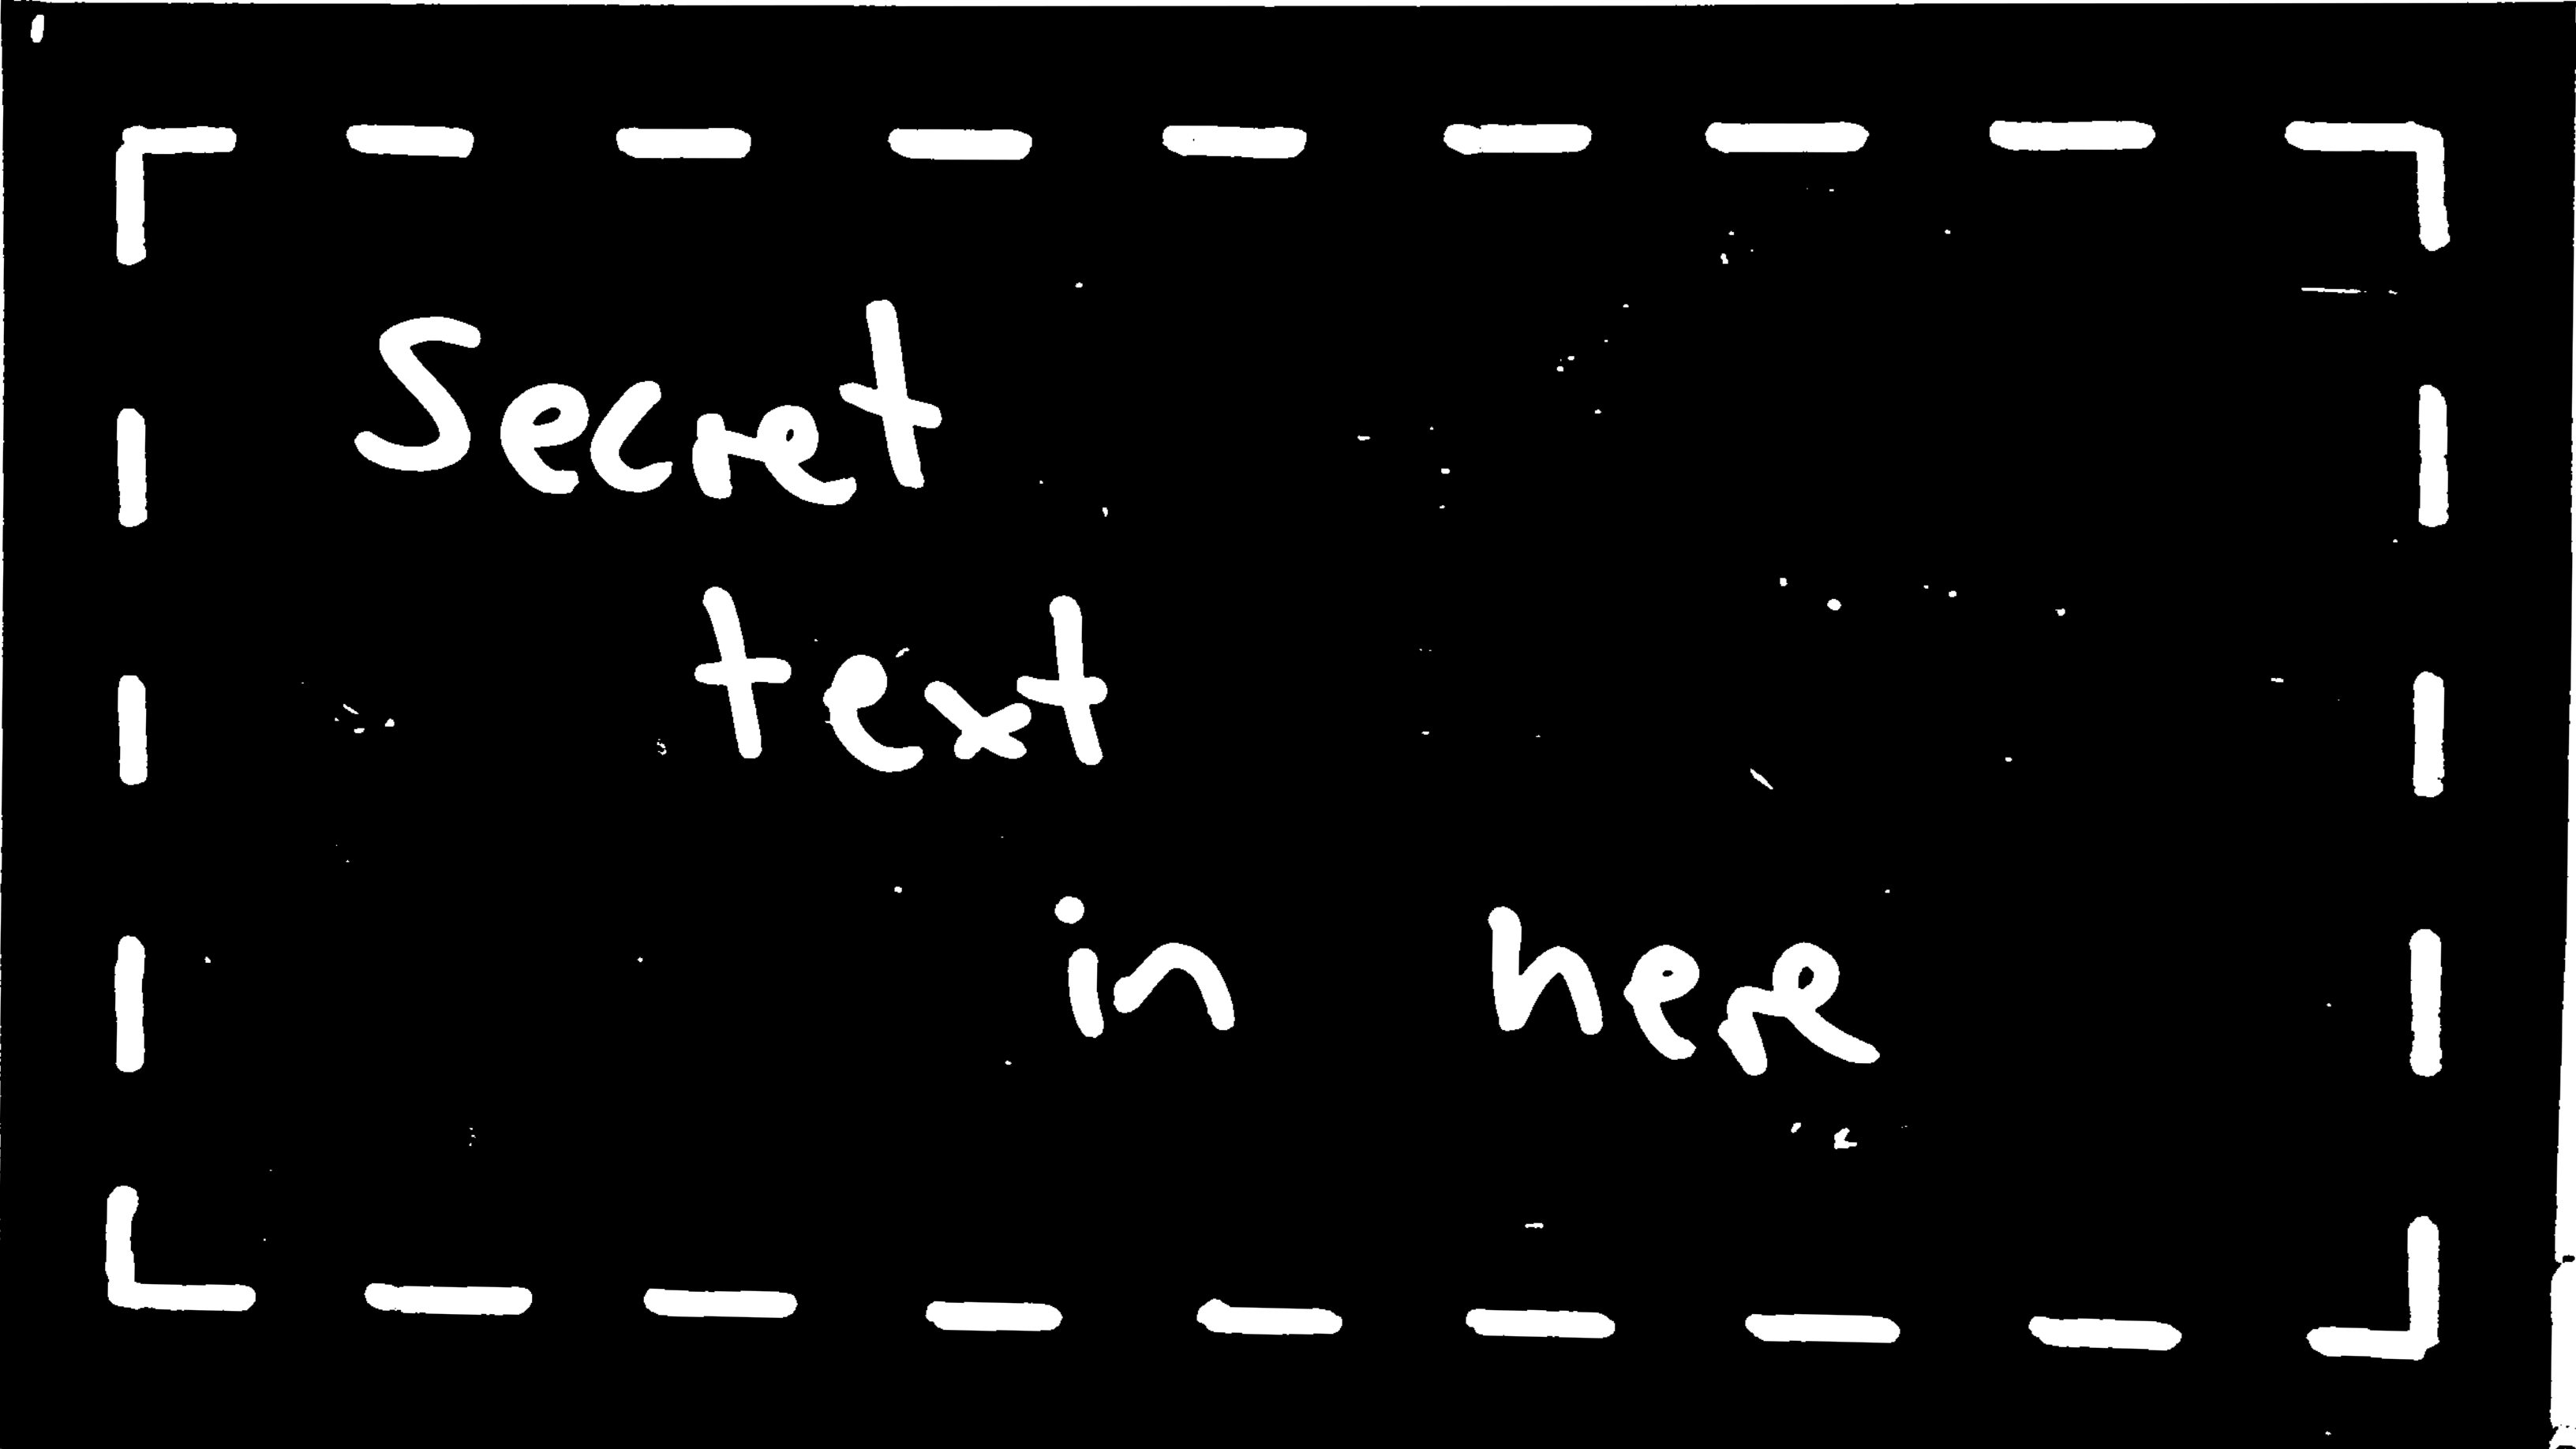 Secret
text
in here